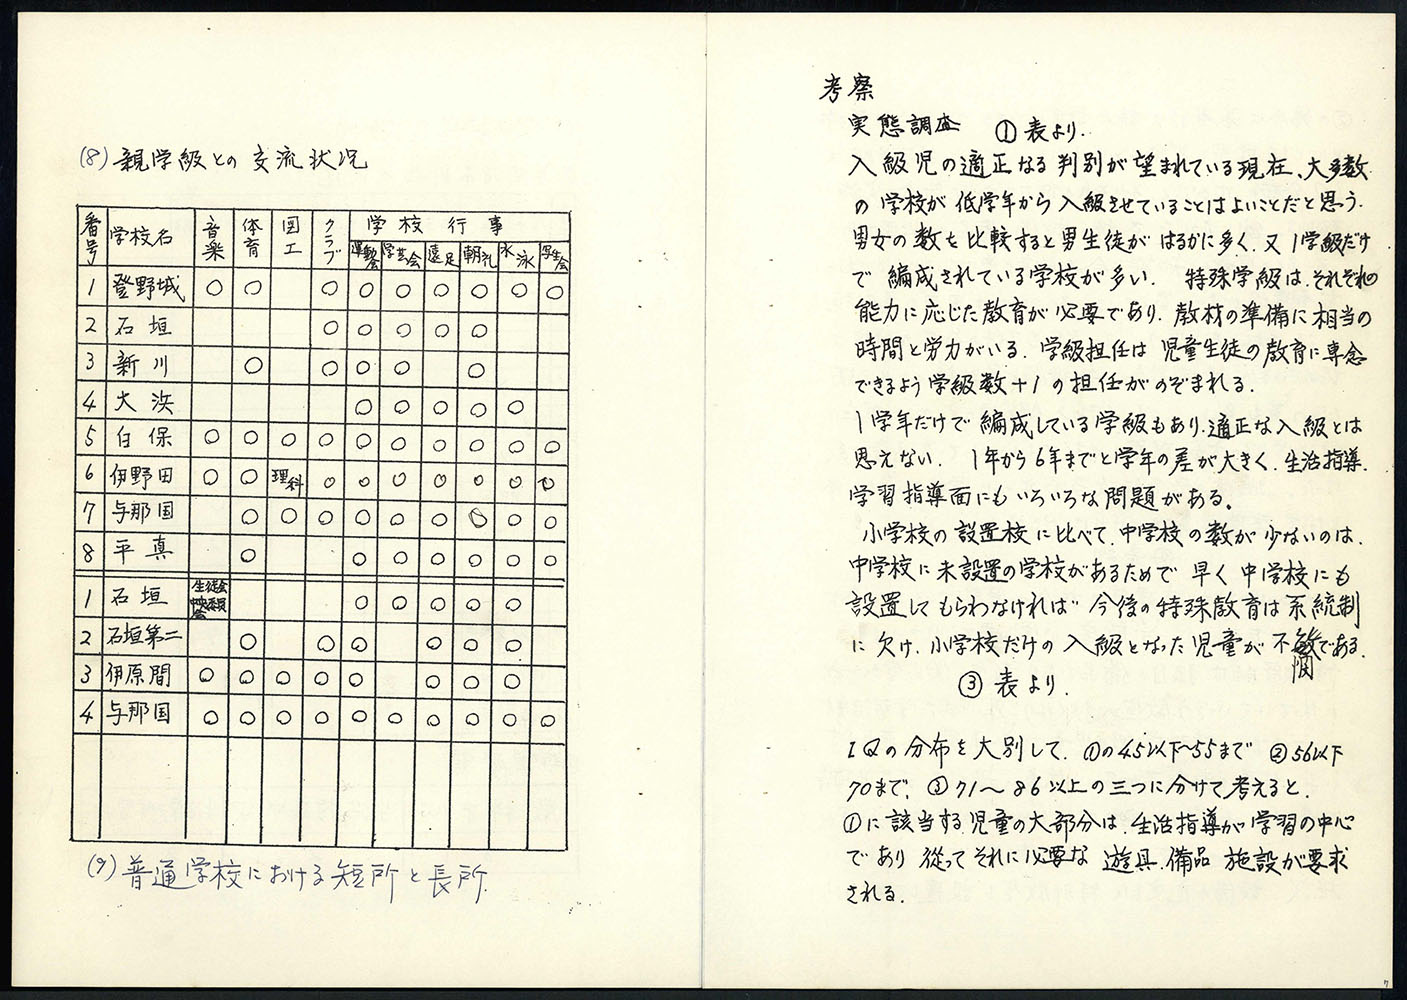 (8) 親学級との交流状況
番号 学校名 音楽 体育 図工 クラブ 学校行事
運動会 学芸会 遠足 朝礼 水泳 学生会
1 登野城 ○ ○ ○ ○ ○ ○ ○ ○ ○
2 石垣 ○ ○ ○ ○ ○
3 新川 ○ ○ ○ ○ ○
4 大浜 ○ ○ ○ ○ ○
5 白保 ○ ○ ○ ○ ○ ○ ○ ○ ○ ○
6 伊野田 ○ ○ 理科 ○ ○ ○ ○ ○ ○ ○
7 与那国 ○ ○ ○ ○ ○ ○ ○ ○ ○
8 平真 ○ ○ ○ ○ ○ ○ ○
1 石垣 生徒会中央委員会 ○ ○ ○ ○ ○
2 石垣第二 ○ ○ ○ ○ ○ ○
3 伊原間 ○ ○ ○ ○ ○ ○ ○ ○
4 与那国 ○ ○ ○ ○ ○ ○ ○ ○ ○ ○
(9) 普通学校における短所と長所.
考察
実態調査 ①表より.
入級児の適正なる判別が望まれている現在、大多数
の学校が低学年から入級させていることはよいことだと思う.
男女の数を比較すると男生徒がはるかに多く、又1学級だけ
で編成されている学校が多い. 特殊学級は、それぞれの
能力に応じた教育が必要であり、教材の準備に相当の
時間と労力がいる. 学級担任は児童生徒の教育に専念
できるよう学級数+1の担任がのぞまれる.
1学年だけで編成している学級もあり、適正な入級とは
思えない. 1年から6年までと学年の差が大きく、生活指導.
学習指導面にもいろいろな問題がある。
小学校の設置校に比べて、中学校の数が少ないのは、
中学校に未設置の学校があるためで早く中学校にも
設置してもらわなければ今後の特殊教育は系統制
に欠け、小学校だけの入級となった児童が不憫である.
③表より.
IQの分布を大別して、①の45以下~55まで ②56以下
70まで、③71~86以上の三つに分けて考えると、
①に該当する児童の大部分は、生活指導が学習の中心
であり従ってそれに必要な遊具、備品施設が要求
される.